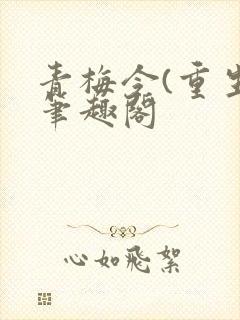 青梅令(重生
筆趣閣
心如飛絮